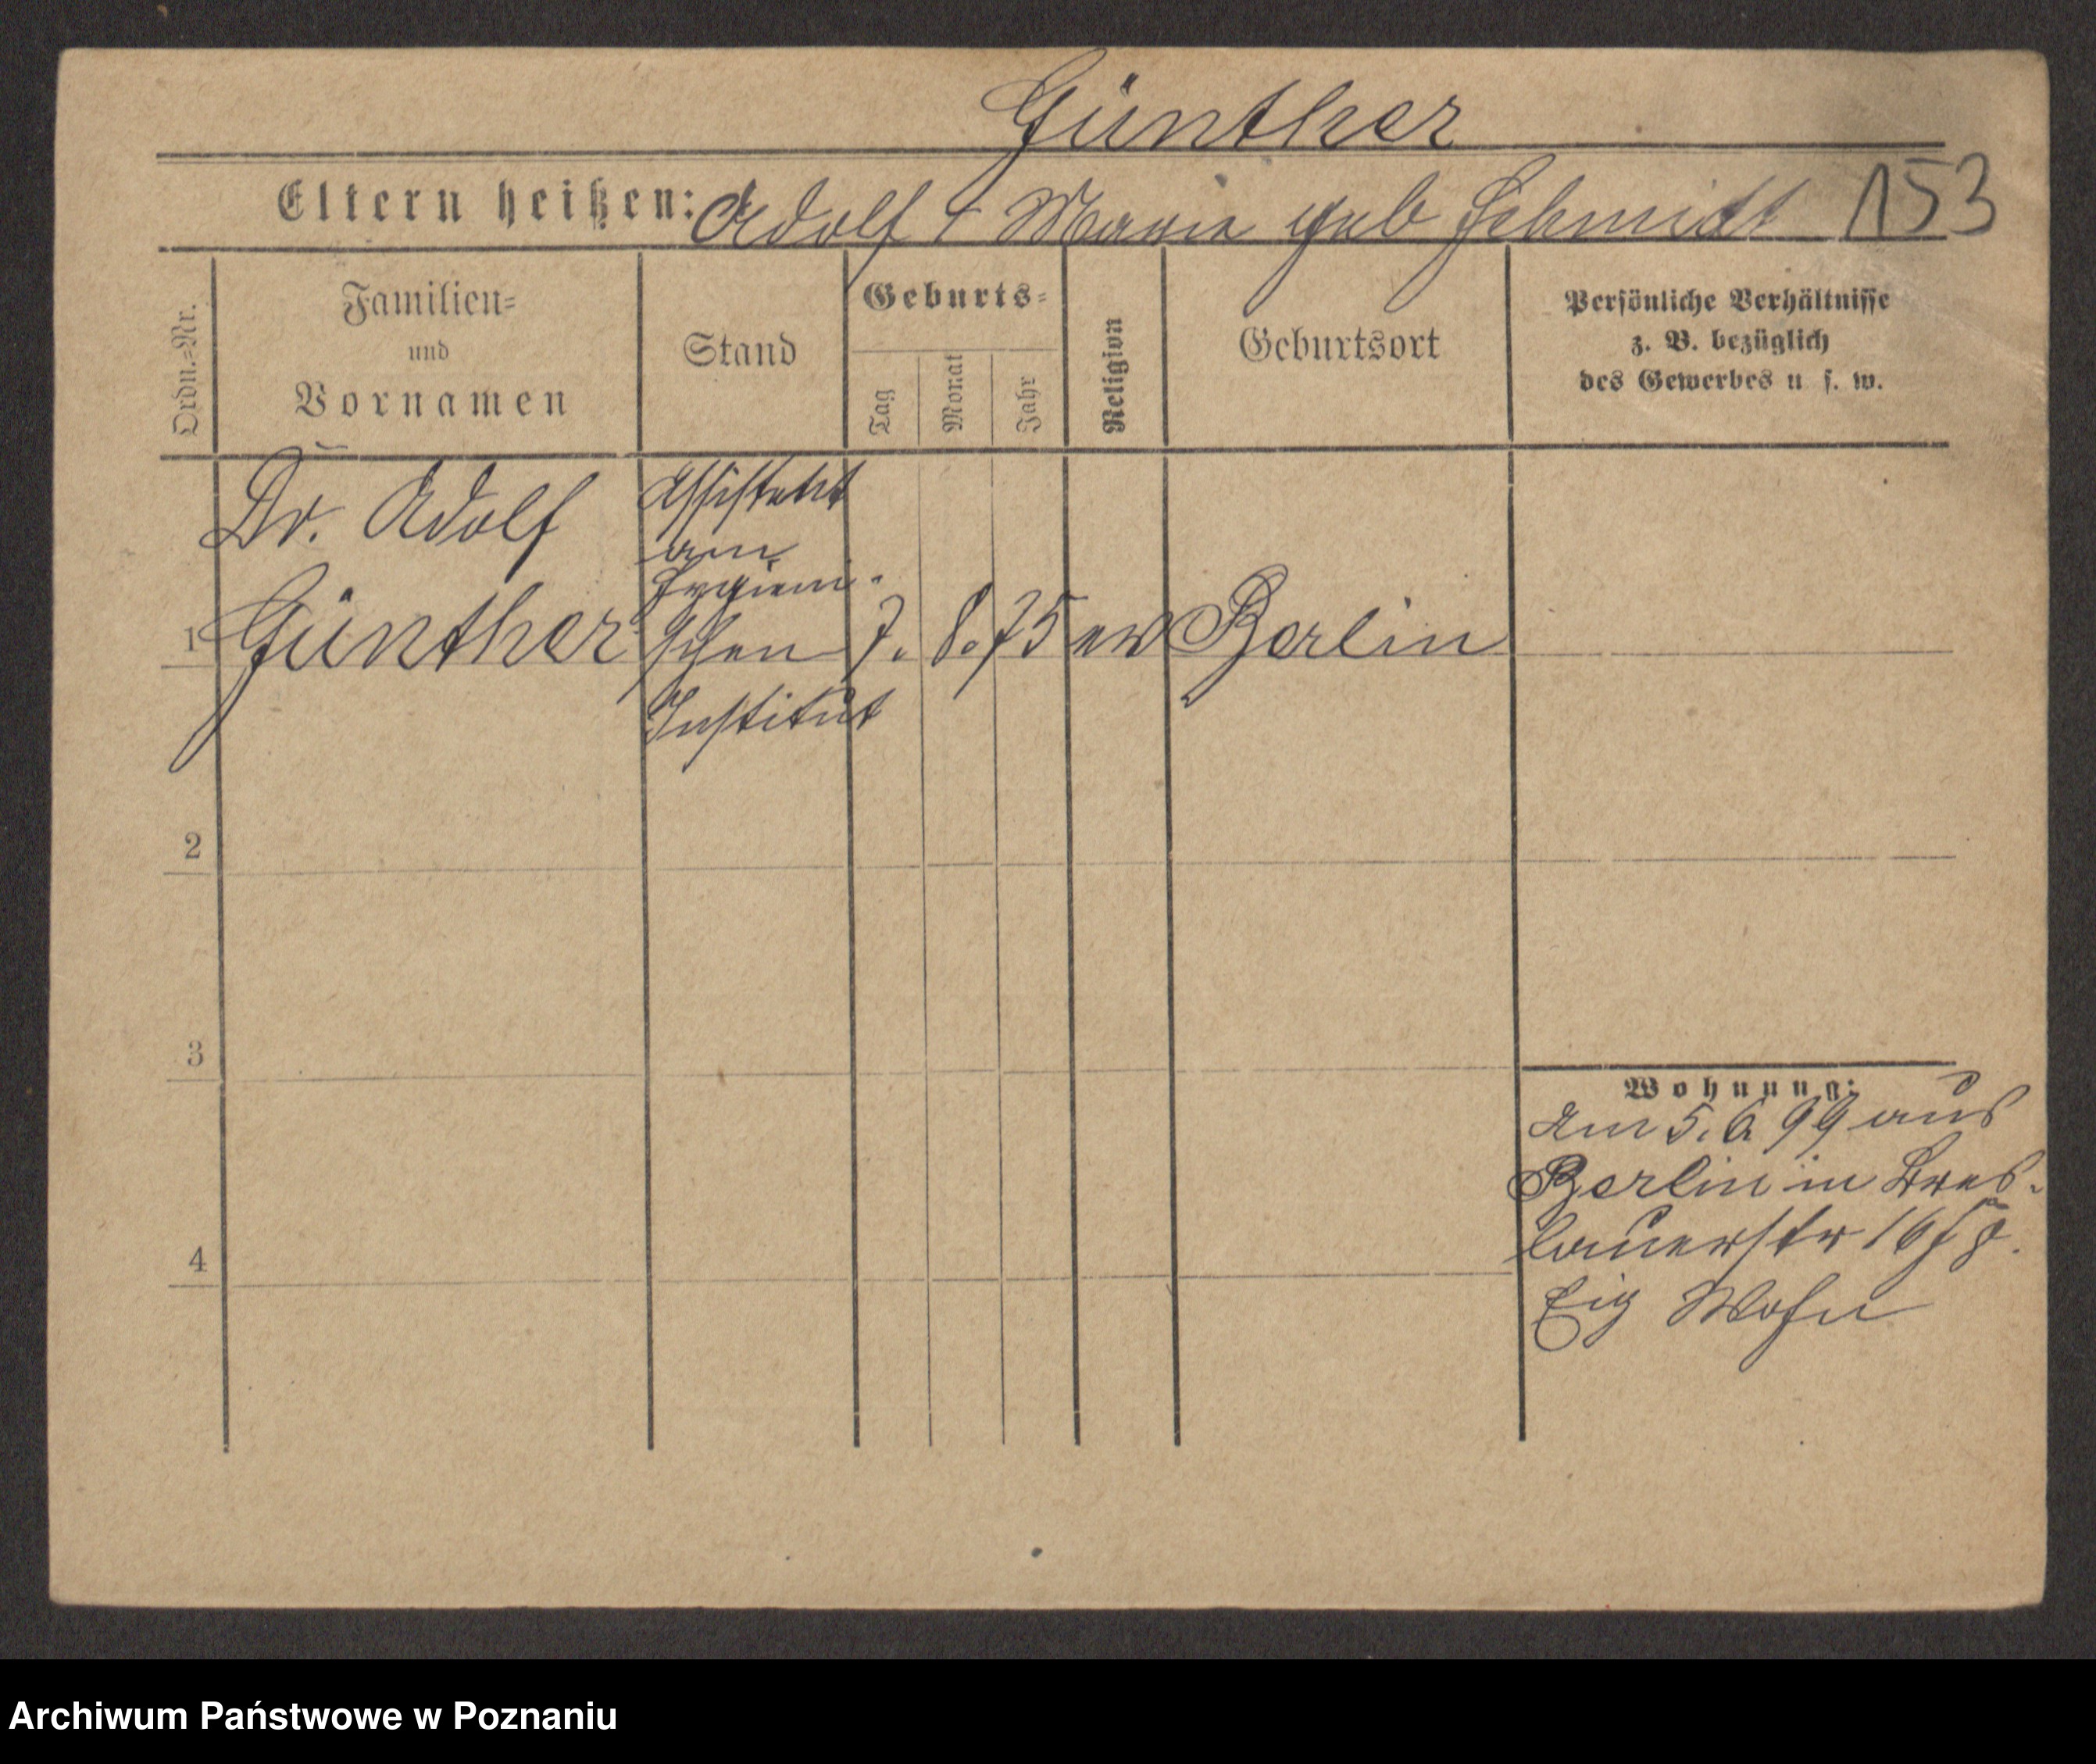 Günther
Eltern heißen: Adolf & Marie geb Schmidt 153
Ordn.=Nr.
Familien=
und
Vornamen
Stand
Geburts=
Tag
Monat
Jahr
Religion
Geburtsort
Persönliche Verhältnisse
z. B. bezüglich
des Gewerbes u. s. w.
Dr. Adolf
Assistent
am
Hygieni-
1 Günther schen 7. 8. 75 ev Berlin
Institut
2
3
4
Wohnung:
Am 5. 6. 99 aus
Berlin in Bres-
lauerstr
Eig Wohn
Archiwum Państwowe w Poznaniu